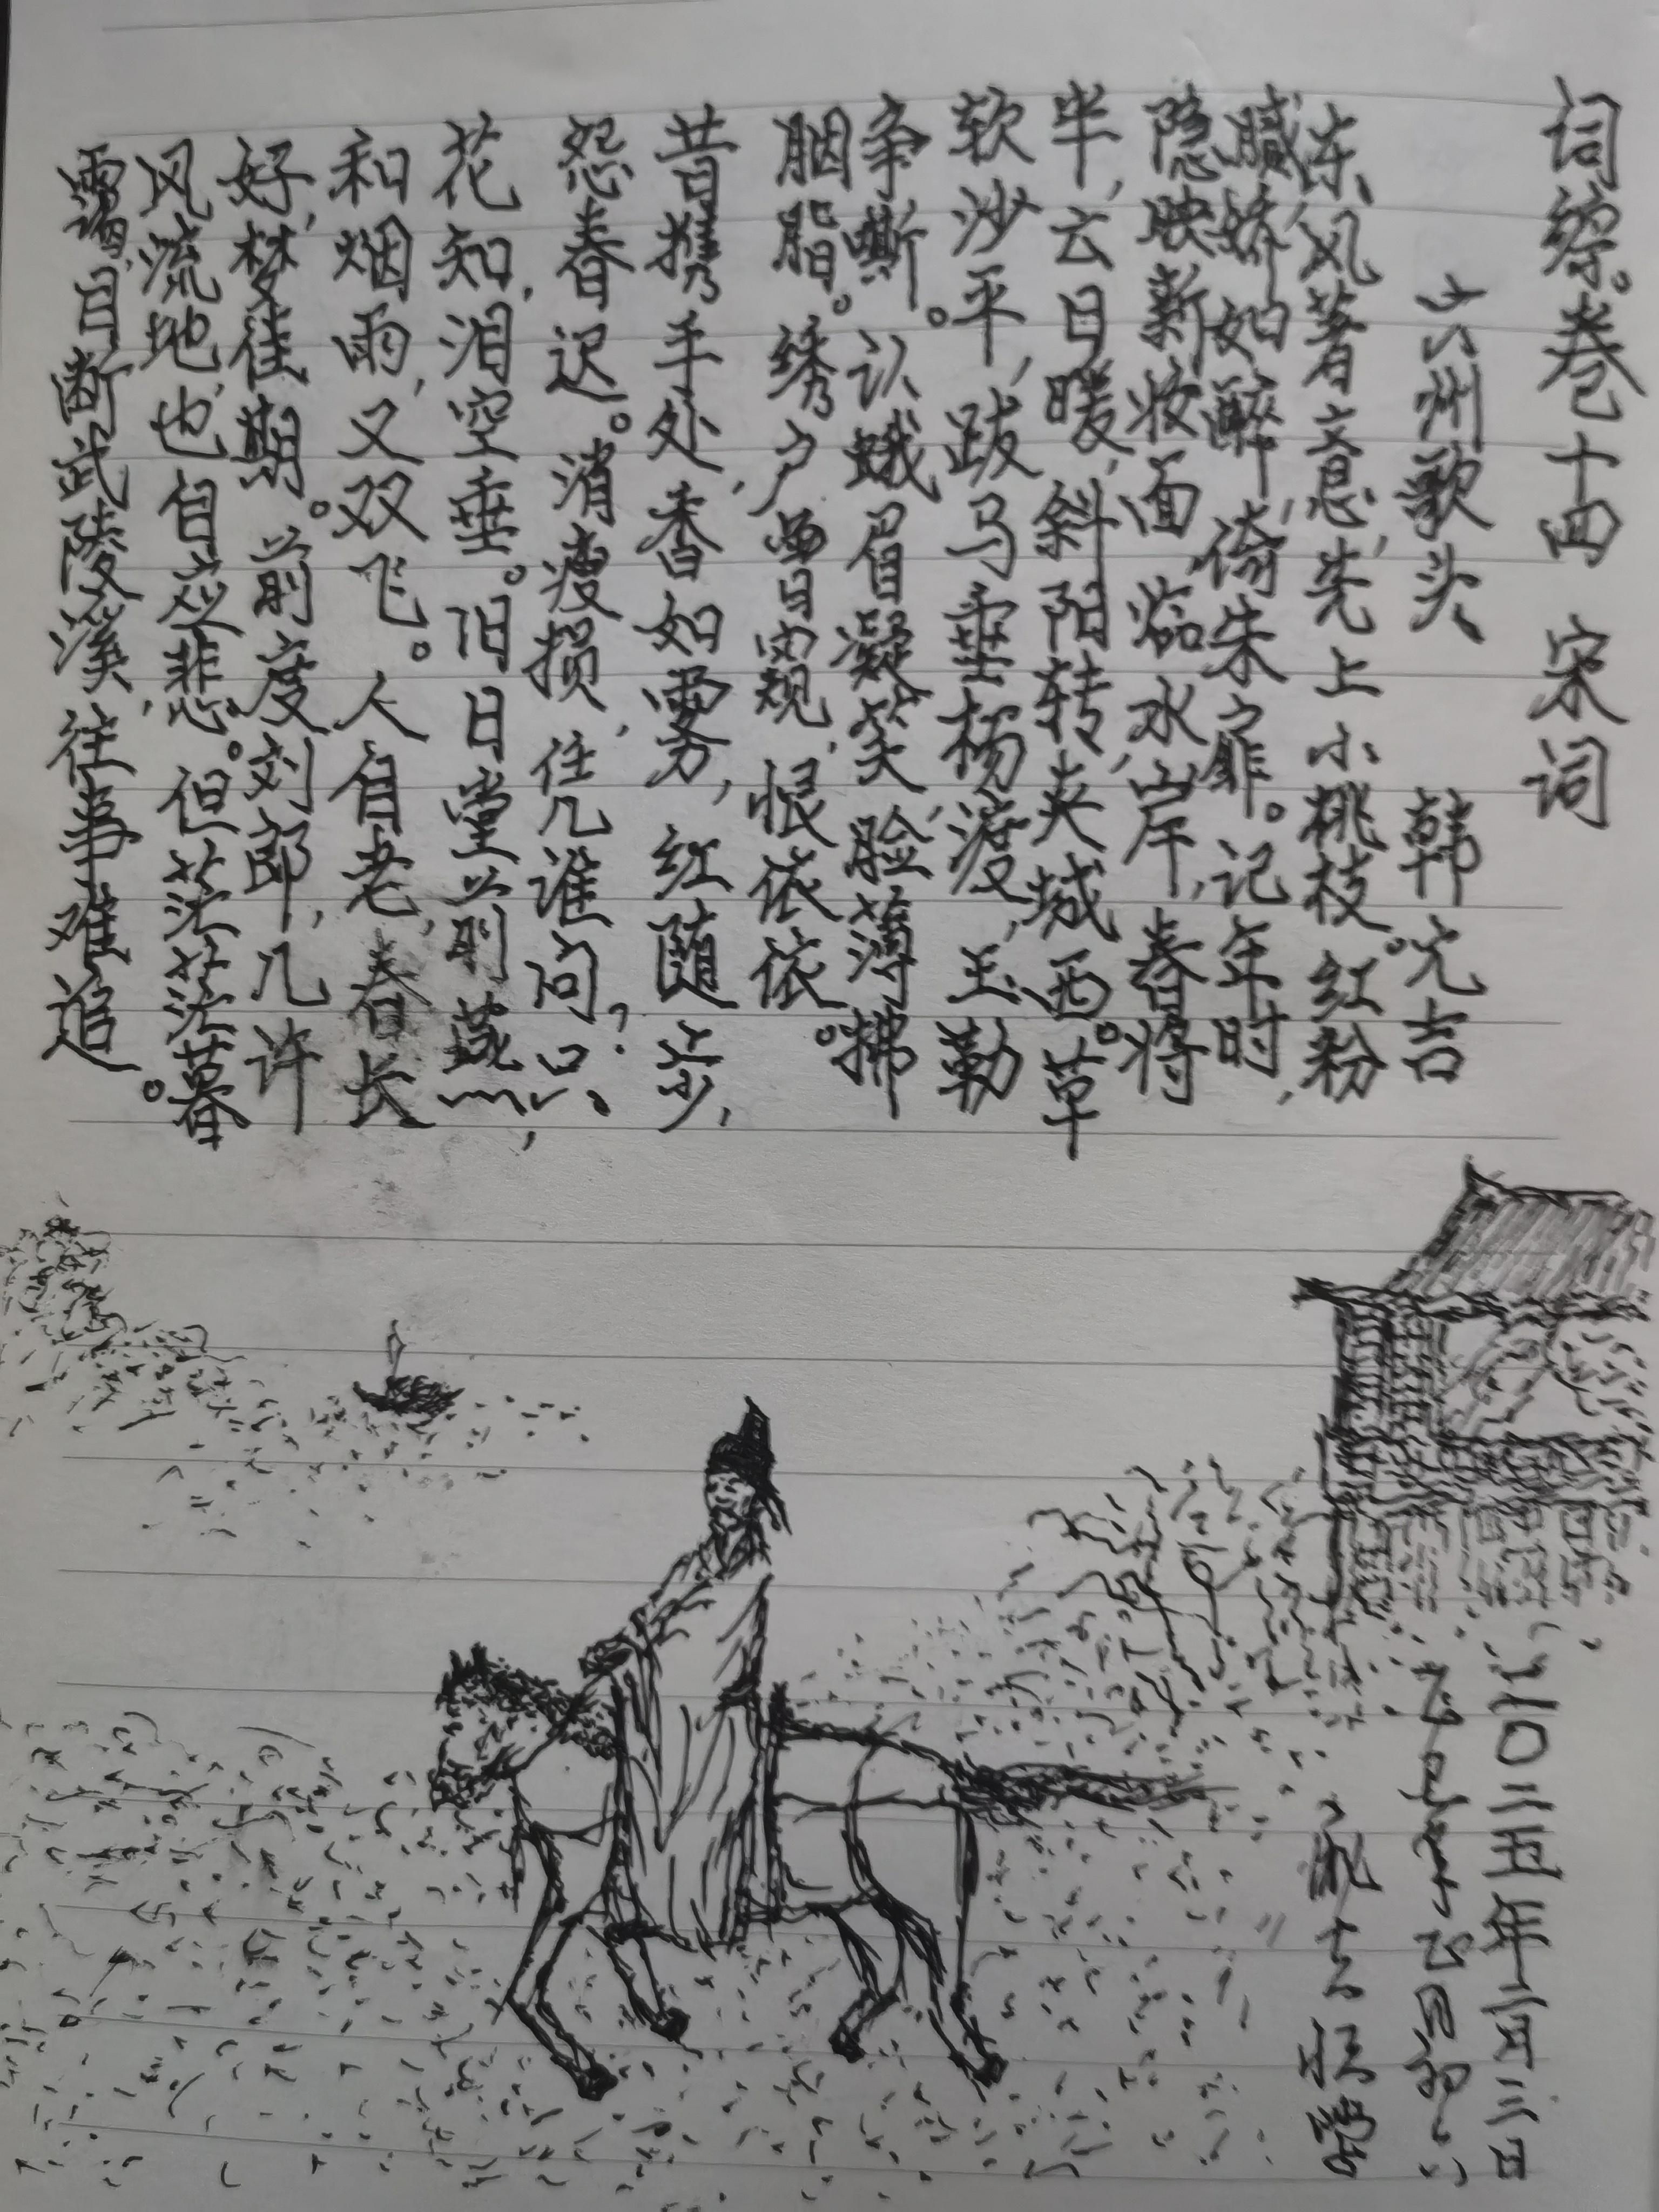 词综。卷十四 宋词
六州歌头 韩元吉
东风著意，先上小桃枝。红粉
腻，娇如醉，倚朱扉。记年时，
隐映新妆面，临水岸，春将
半，云日暖，斜阳转，夹城西。草
软沙平，跋马垂杨渡，玉勒
争嘶。认蛾眉凝笑，脸薄拂
胭脂。绣户曾窥，恨依依。
昔携手处，香如雾，红随步，
怨春迟。消瘦损，住几谁问？只
花知，泪空垂。旧日堂前燕，
和烟雨，又双飞。人自老，春长
好，梦佳期。前度刘郎，几许
风流地，也自应悲。但茫茫暮
霭，目断武陵溪，往事难追。
二〇二五年二月三日
乙巳年正月初六